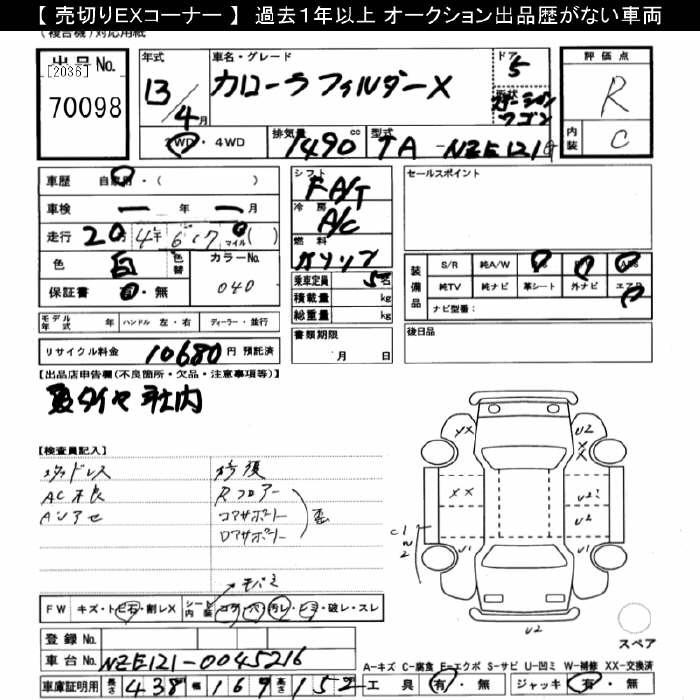 【 売切りEXコーナー 】 過去１年以上 オークション出品歴がない車両
(複合機)対応用紙
出品No.
[2036]
70098
年式
13/4月
車名・グレード
カローラフィルダーX
ドア
5
形状
ステーション
ワゴン
評価点
R
内装
C
2WD・4WD
排気量
1490cc
型式
TA-NZE121G
車歴 自家用・( )
車検 ー年ー月
走行 20万4千617マイル( )
色 白 色替
カラーNo.
040
保証書 有・無
シフト
FA/T
冷房
A/C
燃料
ガソリン
乗車定員 5名
積載量 kg
総重量 kg
書類期限
月 日
セールスポイント
装備品
S/R 純A/W
純TV 純ナビ 革シート 外ナビ エアB
ナビ型番:
後日品
モデル年式 年 ハンドル 左・右 ディーラー・並行
リサイクル料金 10680円 預託済
【出品店申告欄(不良箇所・欠品・注意事項等)】
夏タイヤ 社内
【検査員記入】
修復
AC不良 Rフロアー
コアサポート 歪
ロアサポート
FW キズ・トビ石・割レX シート内装 コゲ・穴・汚レ・シミ・破レ・スレ
XX
U2
XX
XX
U2
U2
U1
U1
U2
スペア
登録No.
車台No. NZE121-0045216
A-キズ C-腐食 E-エクボ S-サビ U-凹ミ W-補修 XX-交換済
車庫証明用 長さ 438 幅 169 高さ 152 工具 有・無 ジャッキ 有・無